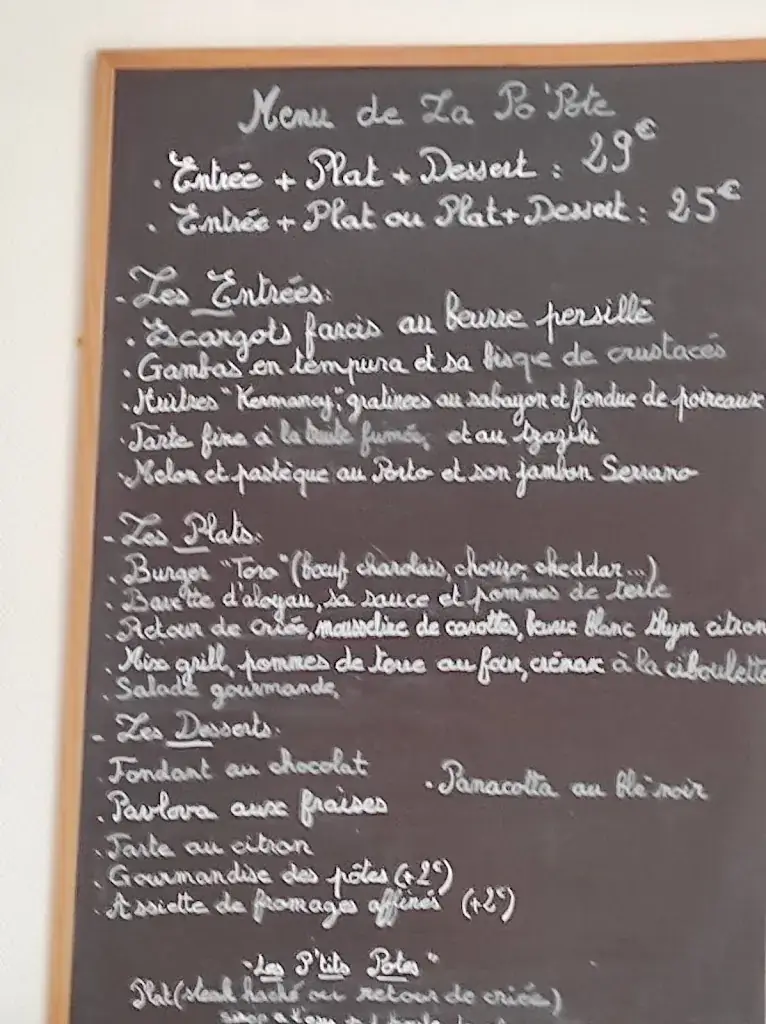 Menu de La Po'Pote
. Entrée + Plat + Dessert : 29€
. Entrée + Plat ou Plat + Dessert : 25€
- Les Entrées:
. Escargots farcis au beurre persillé
. Gambas en tempura et sa bisque de crustacés
. Huîtres "Kermancy", gratinées au sabayon et fondue de poireaux
. Tarte fine à la truite fumée, et au tzaziki
. Melon et pastèque au Porto et son jambon Serrano
- Les Plats:
. Burger "Toro" (bœuf charolais, chorizo, cheddar...)
. Bavette d'aloyau, sa sauce et pommes de terre
. Retour de criée, mousseline de carottes, beurre blanc thym citron
. Mix grill, pommes de terre au four, crémax à la ciboulette
. Salade gourmande,
- Les Desserts.
. Fondant au chocolat
. Panacotta au blé noir
. Pavlova aux fraises
. Tarte au citron
. Gourmandise des pôtes (+2€)
. Assiette de fromages affinés (+2€)
"Les P'tits Potes"
Plat (steak haché ou retour de criée)